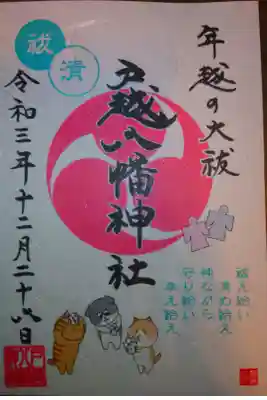 年越の大祓
祓
清
戸越八幡神社
令和三年十二月二十八日
祓え給い
清め給え
神ながら
守り給い
幸え給え